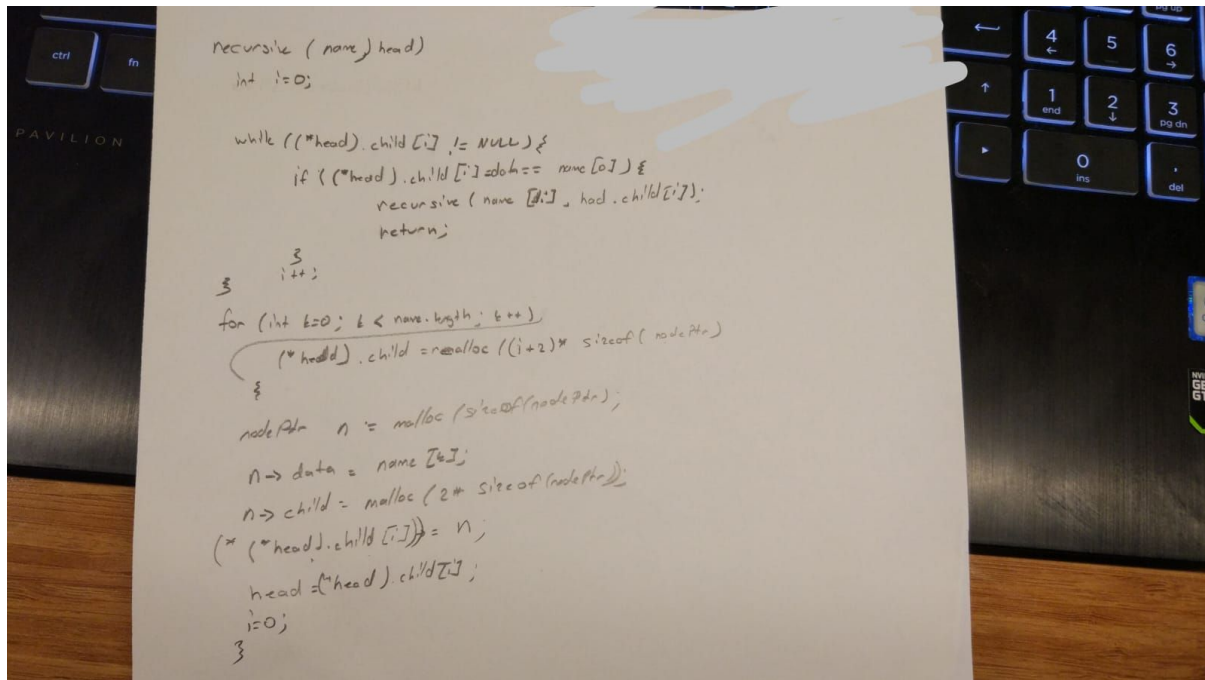 recursive (name, head)
int i=0;
while ((*head).child[i] != NULL) {
if ((*head).child[i] == name[0]) {
recursive (name, head.child[i]);
return;
}
i++;
}
for (int k=0; k < name.length; k++)
(*head).child = realloc ((i+2)* sizeof(nodePtr)
{
nodePtr n = malloc (sizeof(nodePtr);
n-> data = name [k];
n-> child = malloc (2* sizeof(nodePtr));
(* (*head).child[i])) = n;
head =(*head).child[i];
i=0;
}
ctrl
fn
PAVILION
pg up
4
5
6
1
end
2
3
pg dn
0
ins
.
del